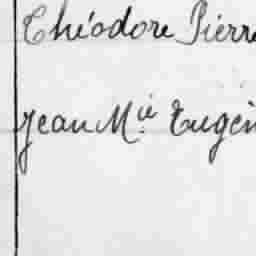 Théodore Pierre
Jean Mie Eugèn